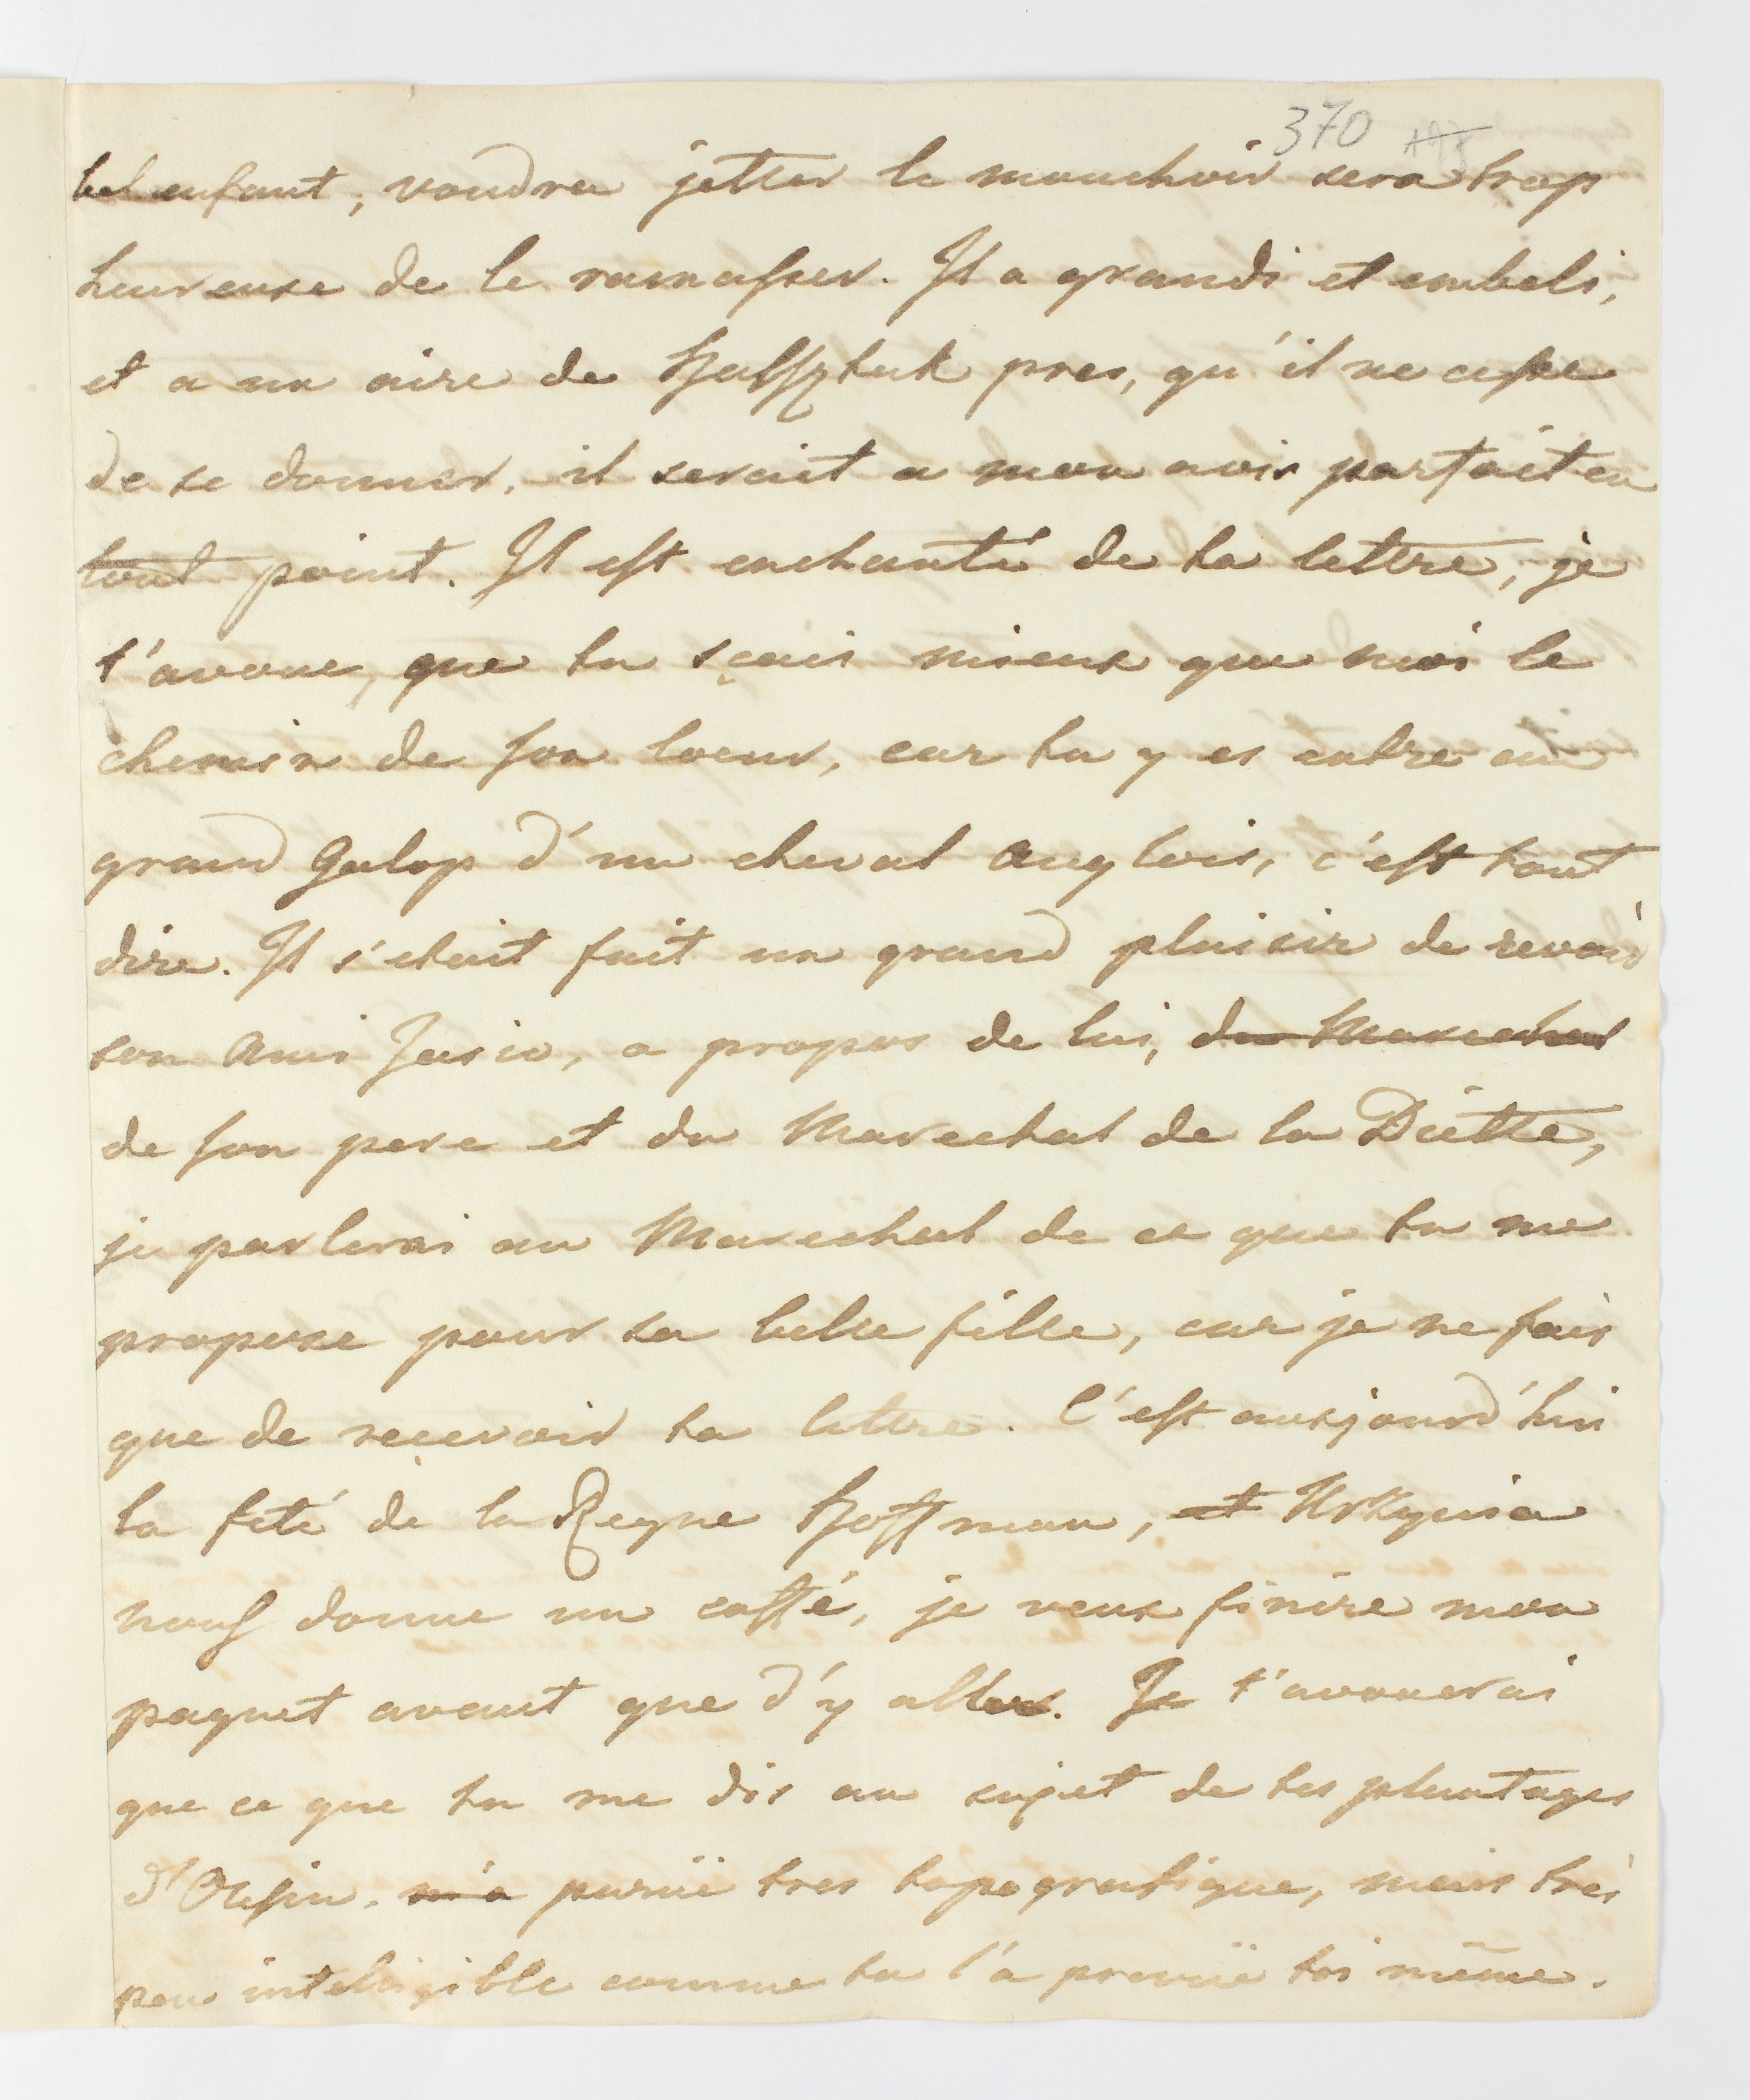 370
bel enfant, voudra jetter le mouchoir sera trop
heureuse de le ramasser. Il a grandi et embeli,
et a un aire de Halsztuk pres, qu'il ne cesse
de se donner, il seroit a mon avis parfait en
tout point. Il est enchanté de ta lettre, je
t'avoue, que tu sçais mieux que moi le
chemin de son coeur, car tu y es entre au
grand Galop d'un cheval Anglois, c'est tout
dire. Il s'etoit fait un grand plaisir de revoir
son Ami Jasio, a propos de lui, du Marechal
de son pere et du Marechal de la Diètte,
je parlerai au Marechal de ce que tu me
propose pour sa belle fille, car je ne fais
que de reçevoir ta lettre. C'est auxjourd'hui
la feté de la Regne Hoffman, et
nous donne un caffé, je veux finire mon
paquet avant que d'y aller. Je t'avouerai
que ce que tu me dis au sujet de tes plantages
d'Olesin, m'a paruë tres topografique, mais très
peu inteligible comme tu l'a prevuë toi même.